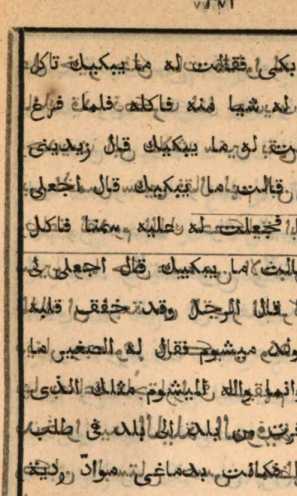 يبكى فقالت له ما يبكيك تاكل
له شيا منه فاكله فلما فرغ
له ما يبكيك قال زيدينى
قالت ما يبكيك قال اجعلى
فجعلت له عليه سمنا فاكل
ما يبكيك قال اجعلى لى
قال الرجل وقد خفق قلبه
ميشوم فقال له الصغير ما
والله الميشوم مثلك الذى
من بلد الى بلد فى طلب
فكانت بدماغى مواد ردية